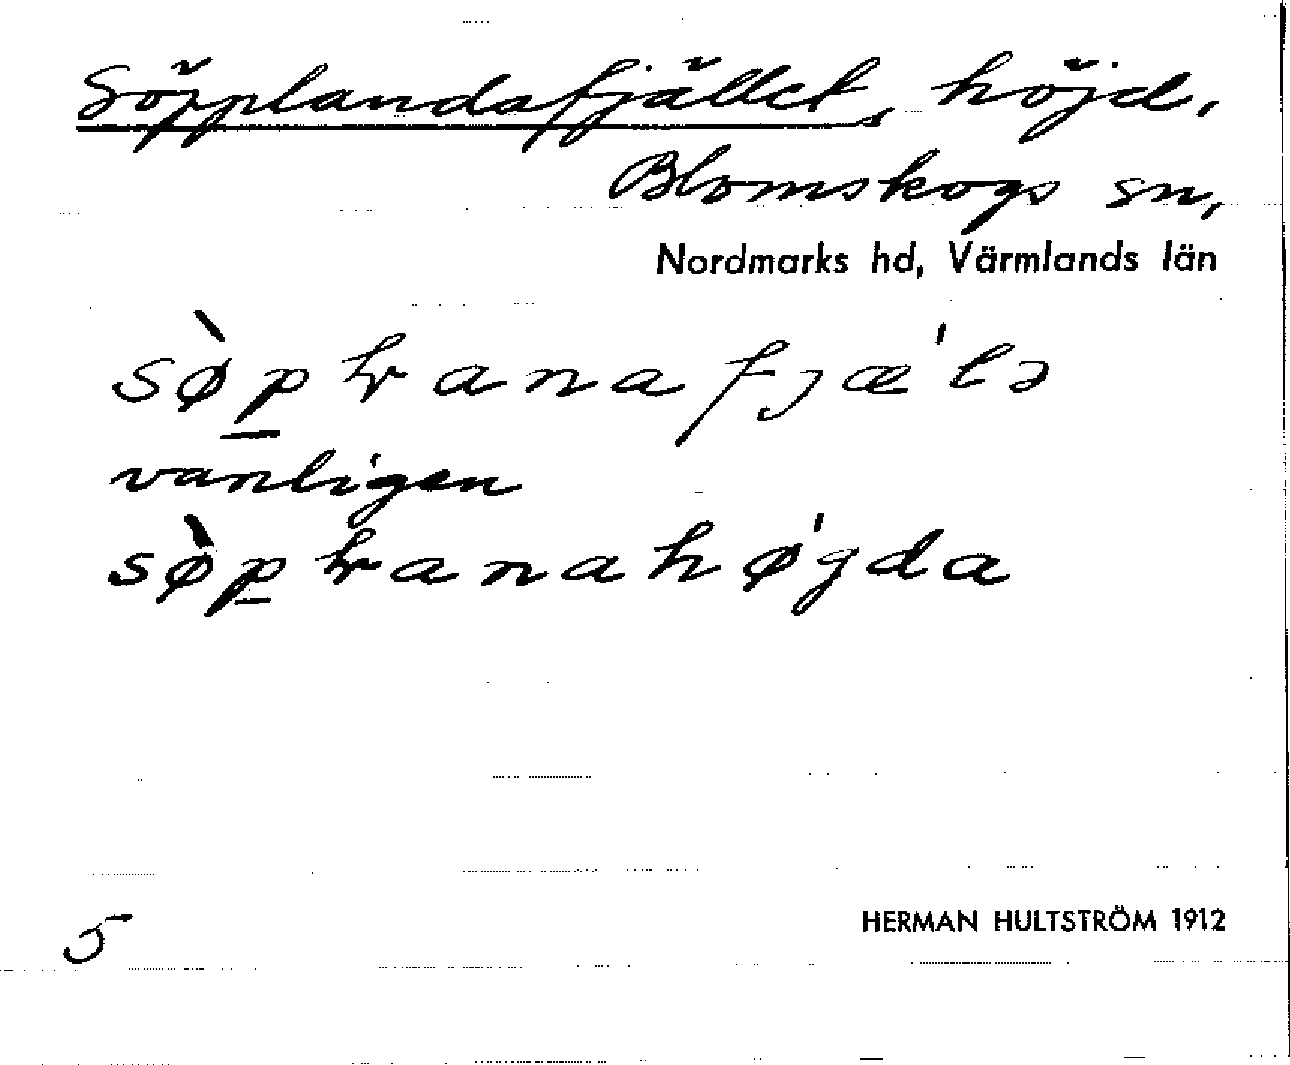 Söpplandafjället, höjd,
Blomskogs sn,
Nordmarks hd, Värmlands län
vanligen
5
HERMAN HULTSTRÖM 1912